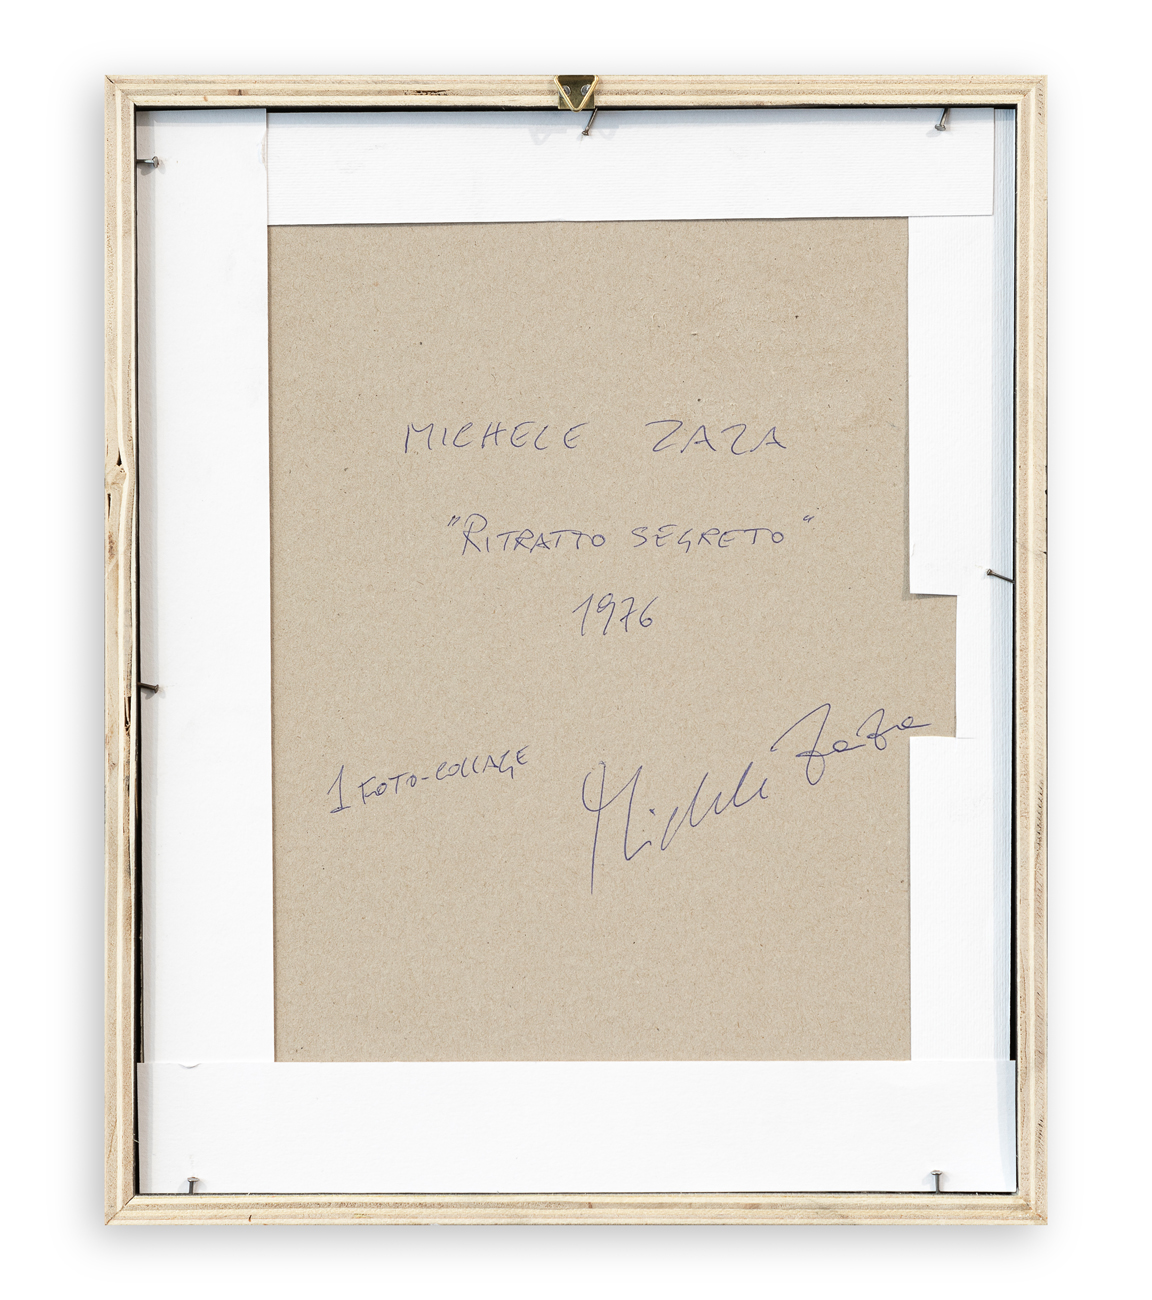 MICHELE ZAZA
"RITRATTO SEGRETO"
1976
1 FOTO-COLLAGE
Michele Zaza